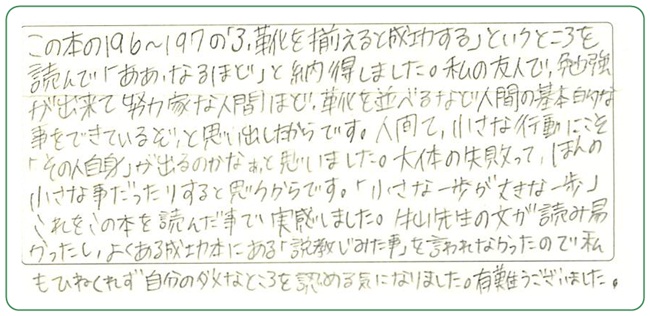 この本の196〜197の「3,靴を揃えると成功する」というところを
読んで「ああ、なるほど」と納得しました。私の友人で、勉強
が出来て努力家な人間ほど、靴を並べるなど人間の基本的な
事をできているぞ、と思い出したからです。人間て、小さな行動にこそ
「その人自身」が出るのかなぁ、と思いました。大体の失敗って、ほんの
小さな事だったりすると思うからです。「小さな一歩が大きな一歩」
これをこの本を読んだ事で実感しました。牛山先生の文が読み易
かったし、よくある成功本にある「説教じみた事」を言われなかったので私
もひねくれず自分のダメなところを認める気になりました。有難うございました。